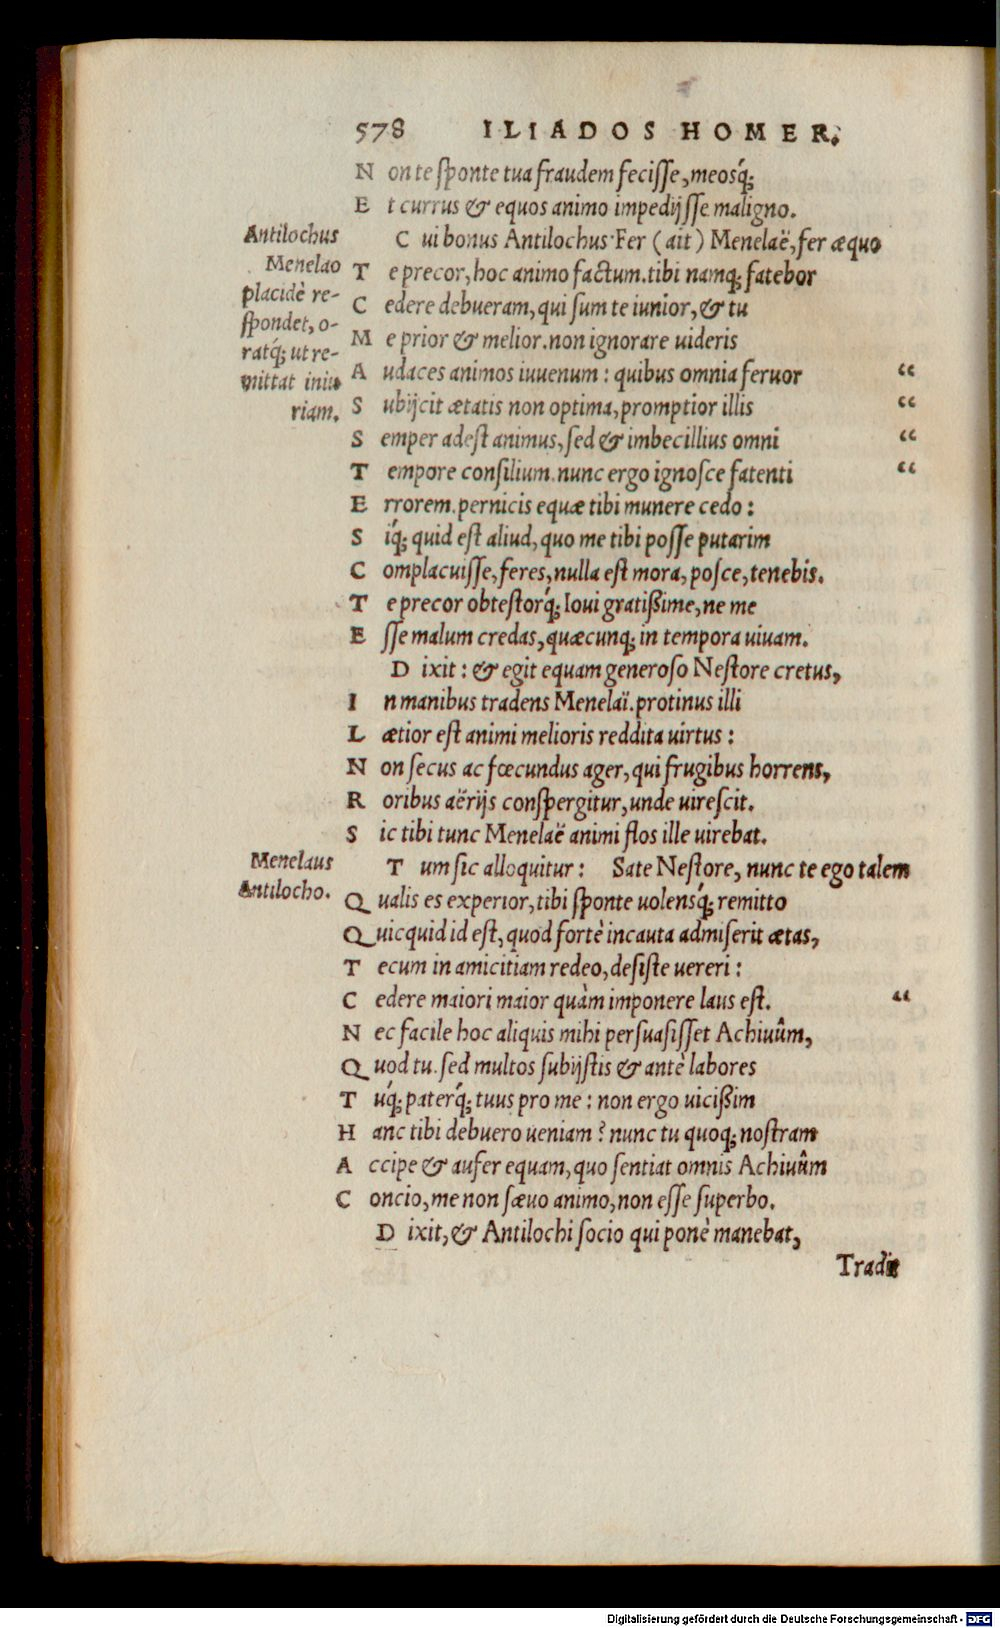 578 ILIADOS HOMER.
N on te ſponte tua fraudem feciſſe, meosq́;
E t currus & equos animo impedijſſe maligno.
C ui bonus Antilochus· Fer (ait) Menelaë, fer æquo
T e precor, hoc animo factum. tibi namq; fatebor
C edere debueram, qui ſum te iunior, & tu
M e prior & melior. non ignorare uideris
A udaces animos iuuenum: quibus omnia feruor “
S ubijcit ætatis non optima, promptior illis “
S emper adeſt animus, ſed & imbecillius omni “
T empore conſilium. nunc ergo ignoſce fatenti “
E rrorem. pernicis equæ tibi munere cedo:
S iq́; quid eſt aliud, quo me tibi poſſe putarim
C omplacuiſſe, feres, nulla eſt mora, poſce, tenebis.
T e precor obteſtorq́; Ioui gratißime, ne me
E ſſe malum credas, quæcunq; in tempora uiuam.
D ixit: & egit equam generoſo Neſtore cretus,
I n manibus tradens Menelaï. protinus illi
L ætior eſt animi melioris reddita uirtus:
N on ſecus ac fœcundus ager, qui frugibus horrens,
R oribus aërijs conſpergitur, unde uireſcit.
S ic tibi tunc Menelaë animi flos ille uirebat.
T um ſic alloquitur: Sate Neſtore, nunc te ego talem
Q ualis es experior, tibi ſponte uolensq́; remitto
Q uicquid id eſt, quod fortè incauta admiſerit ætas,
T ecum in amicitiam redeo, deſiſte uereri:
C edere maiori maior quàm imponere laus eſt. “
N ec facile hoc aliquis mihi perſuaſiſſet Achiuûm,
Q uod tu. ſed multos ſubijſtis & antè labores
T uq́; paterq́; tuus pro me: non ergo uicißim
H anc tibi debuero ueniam? nunc tu quoq; noſtram
A ccipe & aufer equam, quo ſentiat omnis Achiuûm
C oncio, me non ſæuo animo, non eſſe ſuperbo.
D ixit, & Antilochi ſocio qui ponè manebat,
Tradit
Antilochus
Menelao
placidè re-
ſpondet, o-
ratq́; ut re-
mittat iniu
riam.
Menelaus
Antilocho.
Digitalisierung gefördert durch die Deutsche Forschungsgemeinschaft - DFG